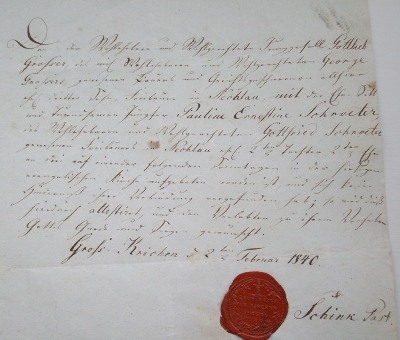 Daß der Wohlehrbare und Wohlgeachtete Junggesell Gottlieb
Grosser des auch Wohlehrbaren und Wohlgeachteten George
Grossers, gewesenen Bauers und Gerichtsgeschworenen allhier
ehel. dritter Sohn, Freibauer in Nicklau, mit der
und tugendsamen Jungfer Pauline Ernestine Schroeter,
des Wohlehrbaren und Wohlgeachteten Gottfried Schroeter
gewesenen Freibauers in Nicklau ehel. 2ten Tochter 2ter
an drei auf einander folgenden Sonntagen in der hiesigen
evangelischen Kirche aufgeboten worden ist und sich kein
Hinderniß ihrer Verbindung vorgefunden hat; so wird dieß
hierdurch attestirt, und den Verlobten zu ihrem Vorhaben
Gottes Gnade und Segen gewünscht.
Groß-Krichen d 2ten Februar 1840.
Schink Past.